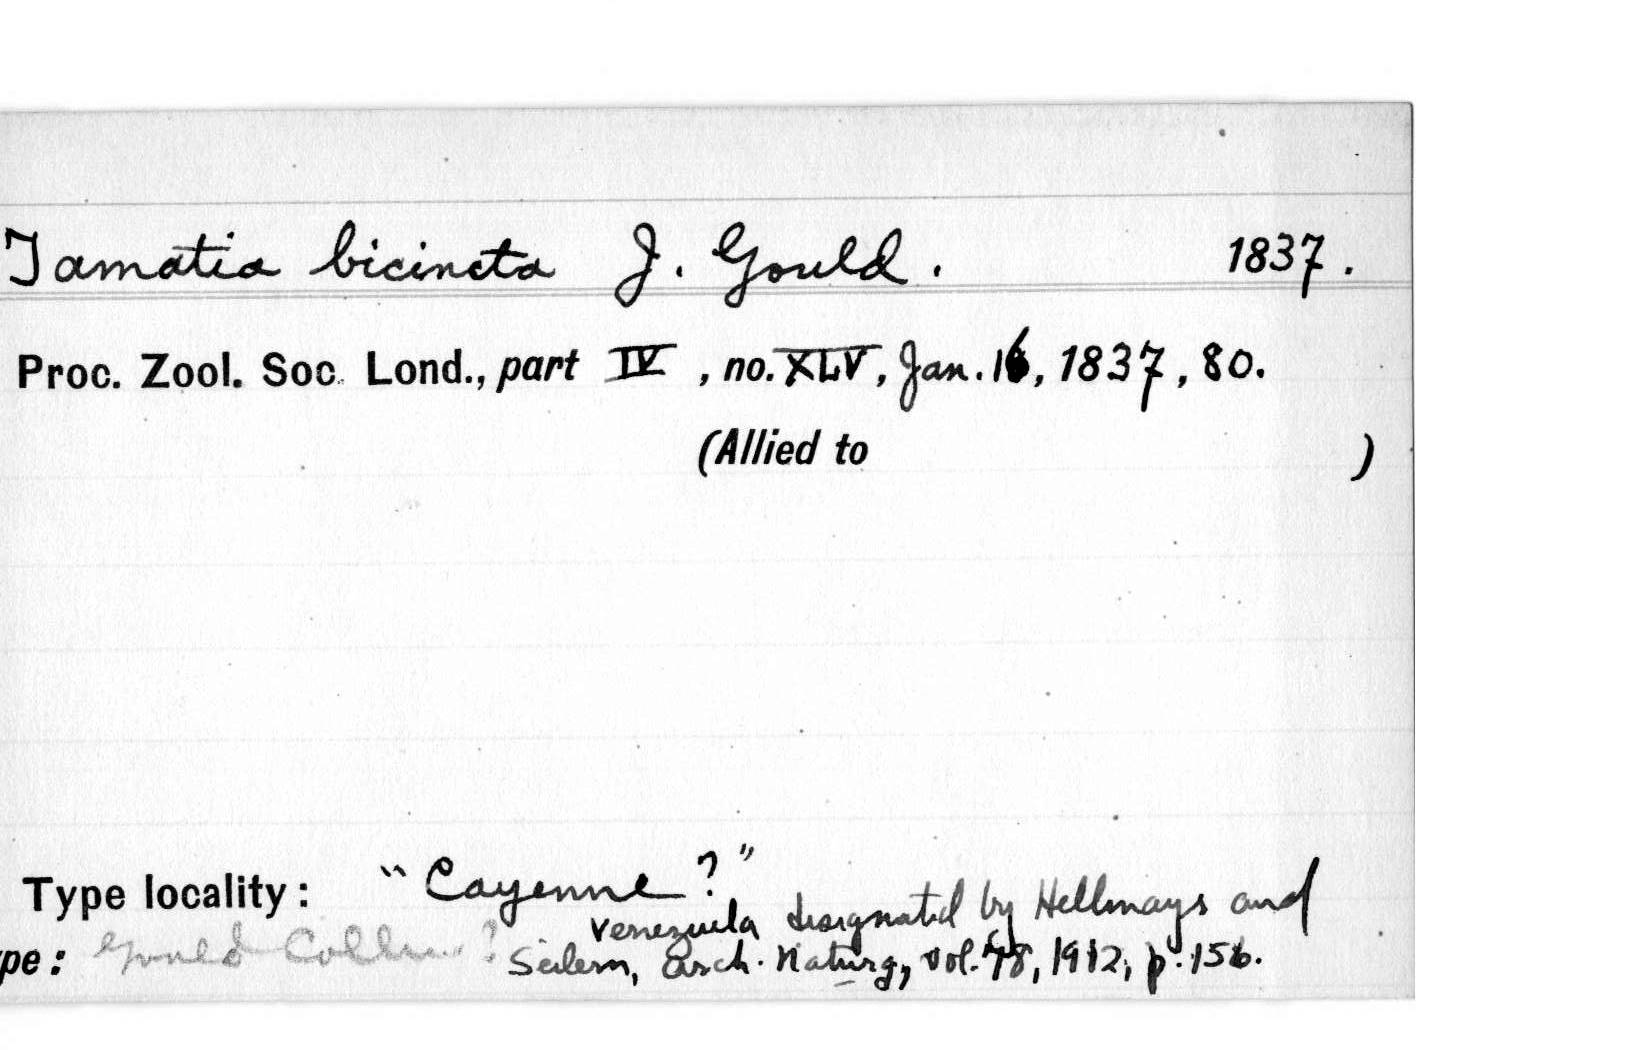 Tamatia bicincta J. Gould. 1837.
Proc. Zool. Soc. Lond., part IV, no. XLV, Jan. 16, 1837, 80.
(Allied to )
Type locality: "Cayenne?"
Venezuela designated by Hellmayr and
Seilern, Arch. Naturg., vol. 78, 1912, p. 156.
pe: Gould Colln. ?